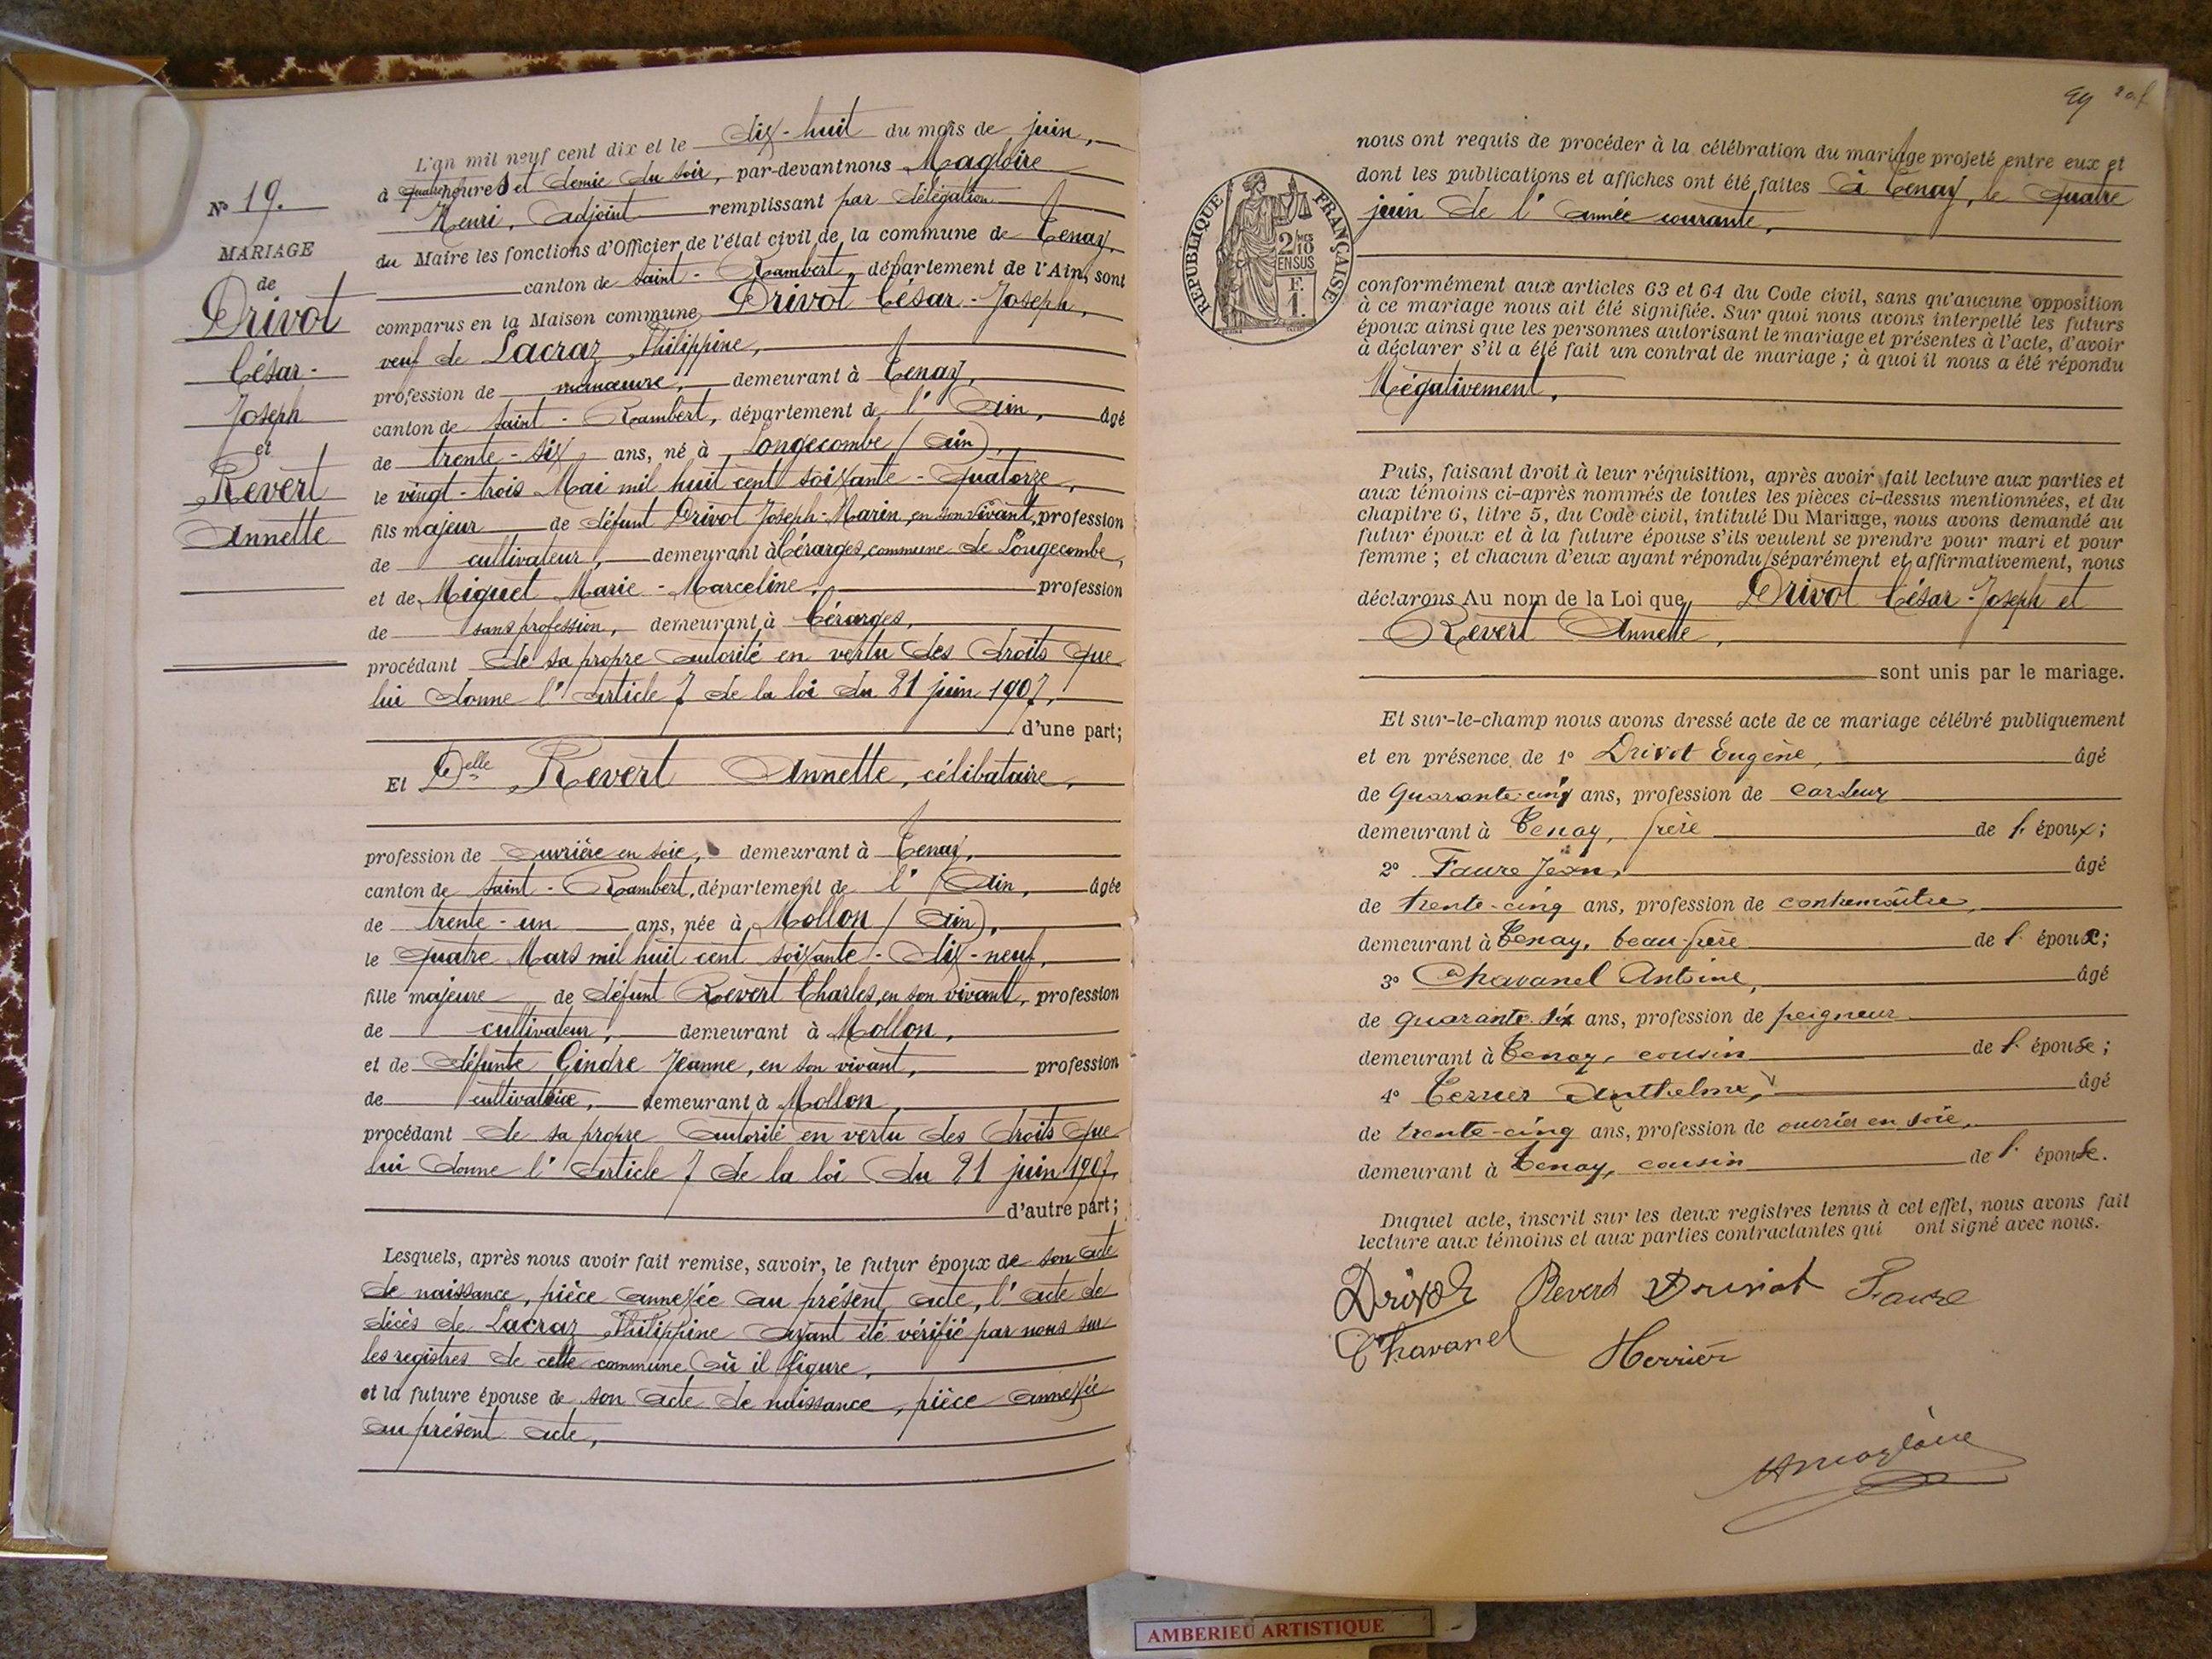 N° 19.
MARIAGE
de
Drivot
César-
Joseph
et
Revert
Annette
L'an mil neuf cent dix et le dix-huit du mois de juin,
à quatre heures et demie du soir, par-devant nous Magloire
Henri, Adjoint remplissant par délégation
du Maire les fonctions d'Officier de l'état civil de la commune de Tenay,
canton de Saint-Rambert, département de l'Ain, sont
comparus en la Maison commune Drivot César-Joseph,
veuf de Lacraz Philippine,
profession de manœuvre, demeurant à Tenay,
canton de Saint-Rambert, département de l'Ain, âgé
de trente-six ans, né à Longecombe (Ain),
le vingt-trois Mai mil huit cent soixante-quatorze,
fils majeur de défunt Drivot Joseph-Marin, en son vivant, profession
de cultivateur, demeurant à Cérarges, commune de Longecombe,
et de Miguet Marie-Marceline, profession
de sans profession, demeurant à Cérarges,
procédant de sa propre autorité en vertu des droits que
lui donne l'article 7 de la loi du 21 juin 1907,
d'une part;
Et Delle Revert Annette, célibataire,
profession de ouvrière en soie, demeurant à Tenay,
canton de Saint-Rambert, département de l'Ain, âgée
de trente-un ans, née à Mollon (Ain),
le quatre Mars mil huit cent soixante-dix-neuf,
fille majeure de défunt Revert Charles, en son vivant, profession
de cultivateur, demeurant à Mollon,
et de défunte Gindre Jeanne, en son vivant, profession
de cultivatrice, demeurant à Mollon,
procédant de sa propre autorité en vertu des droits que
lui donne l'article 7 de la loi du 21 juin 1907,
d'autre part;
Lesquels, après nous avoir fait remise, savoir, le futur époux de son acte
de naissance, pièce annexée au présent acte, l'acte de
décès de Lacraz Philippine ayant été vérifié par nous sur
les registres de cette commune où il figure,
et la future épouse de son acte de naissance, pièce annexée
au présent acte,
nous ont requis de procéder à la célébration du mariage projeté entre eux et
dont les publications et affiches ont été faites à Tenay, le quatre
juin de l'année courante,
RÉPUBLIQUE FRANÇAISE
2/10
EN SUS
F.
1.
conformément aux articles 63 et 64 du Code civil, sans qu'aucune opposition
à ce mariage nous ait été signifiée. Sur quoi nous avons interpellé les futurs
époux ainsi que les personnes autorisant le mariage et présentes à l'acte, d'avoir
à déclarer s'il a été fait un contrat de mariage; à quoi il nous a été répondu
Négativement,
Puis, faisant droit à leur réquisition, après avoir fait lecture aux parties et
aux témoins ci-après nommés de toutes les pièces ci-dessus mentionnées, et du
chapitre 6, titre 5, du Code civil, intitulé Du Mariage, nous avons demandé au
futur époux et à la future épouse s'ils veulent se prendre pour mari et pour
femme; et chacun d'eux ayant répondu séparément et affirmativement, nous
déclarons Au nom de la Loi que Drivot César-Joseph et
Revert Annette,
sont unis par le mariage.
Et sur-le-champ nous avons dressé acte de ce mariage célébré publiquement
et en présence de 1° Drivot Eugène, âgé
de quarante-cinq ans, profession de cardeur
demeurant à Tenay, frère de l'époux;
2° Faure Jean, âgé
de trente-cinq ans, profession de contremaître,
demeurant à Tenay, beau-frère de l'époux;
3° Chavanel Antoine, âgé
de quarante six ans, profession de peigneur
demeurant à Tenay, cousin de l'épouse;
4° Terrier Anthelme, âgé
de trente-cinq ans, profession de ouvrier en soie,
demeurant à Tenay, cousin de l'épouse.
Duquel acte, inscrit sur les deux registres tenus à cet effet, nous avons fait
lecture aux témoins et aux parties contractantes qui ont signé avec nous.
Drivot Revert Drivot Faure
Chavanel Terrier
HMagloire
AMBERIEU ARTISTIQUE